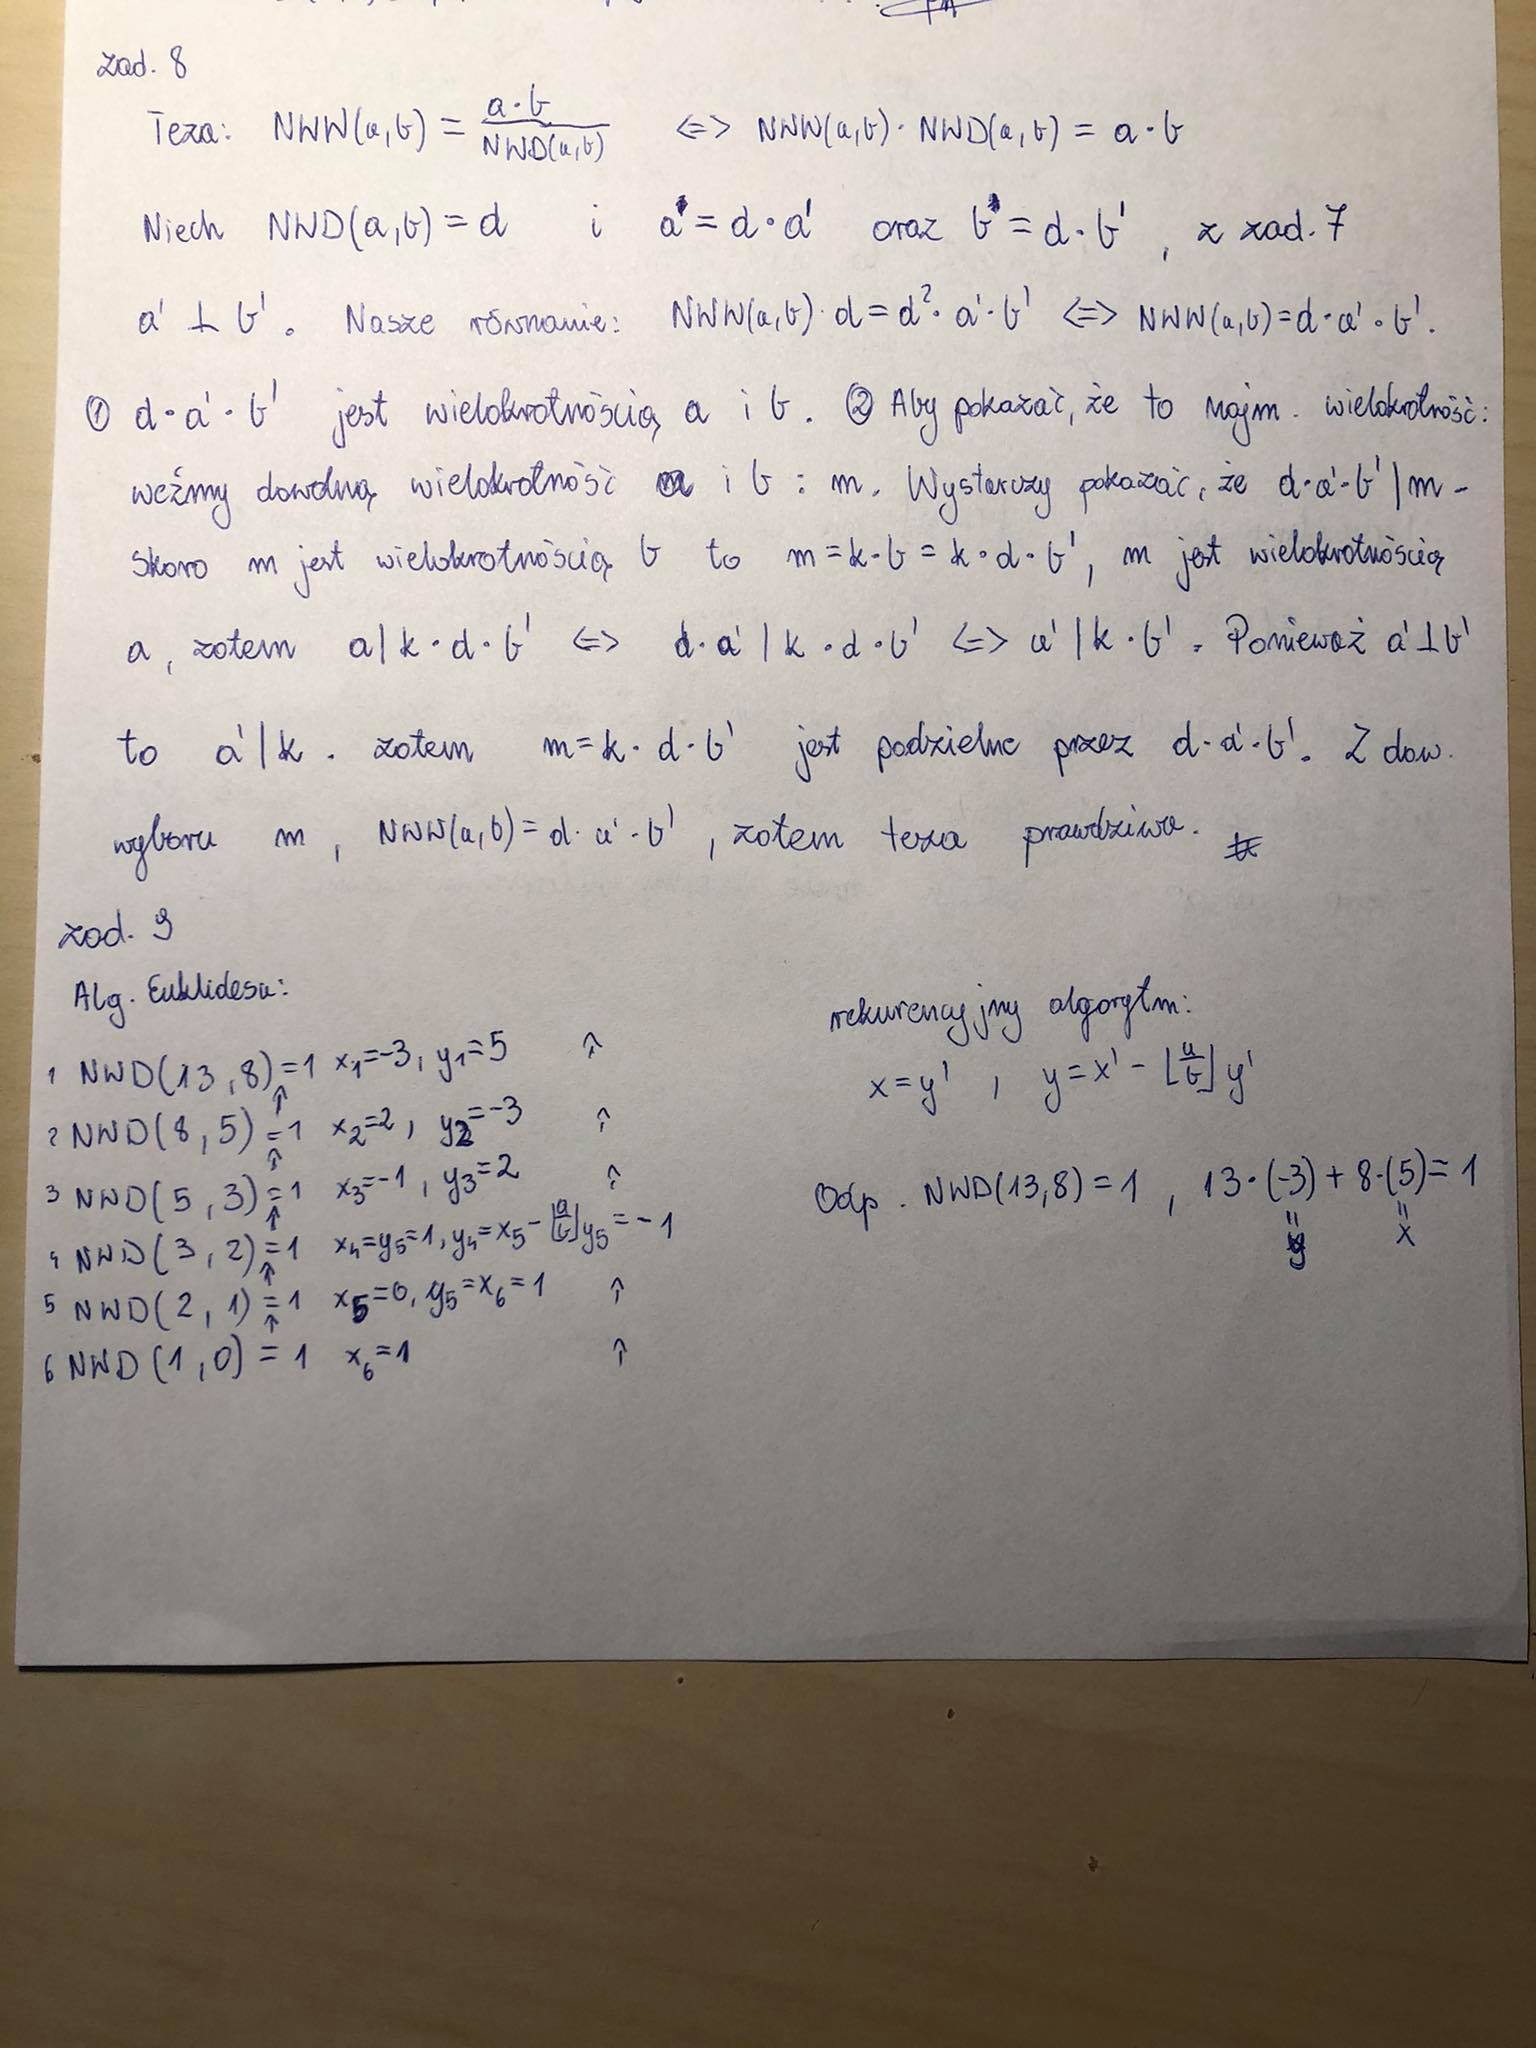 zad. 8
Teza: NWW(a,b) = a·b / NWD(a,b) <=> NWW(a,b) · NWD(a,b) = a·b
Niech NWD(a,b) = d i a = d·a' oraz b = d·b', z zad. 7
a' ⊥ b'. Nasze równanie: NWW(a,b)·d = d²·a'·b' <=> NWW(a,b) = d·a'·b'.
① d·a'·b' jest wielokrotnością a i b. ② Aby pokazać, że to najm. wielokrotność:
weźmy dowolną wielokrotność a i b : m. Wystarczy pokazać, że d·a'·b' | m -
skoro m jest wielokrotnością b to m = k·b = k·d·b', m jest wielokrotnością
a, zatem a | k·d·b' <=> d·a' | k·d·b' <=> a' | k·b'. Ponieważ a' ⊥ b'
to a' | k. zatem m = k·d·b' jest podzielne przez d·a'·b'. Z dow.
wyboru m, NWW(a,b) = d·a'·b', zatem teza prawdziwa.
zad. 9
Alg. Euklidesa:
1 NWD(13,8) = 1 x₁=-3, y₁=5 ↑
2 NWD(8,5) = 1 x₂=2, y₂=-3 ↑
3 NWD(5,3) = 1 x₃=-1, y₃=2 ↑
4 NWD(3,2) = 1 x₄=y₅=1, y₄=x₅-⌊a/b⌋y₅=-1
5 NWD(2,1) = 1 x₅=0, y₅=x₆=1 ↑
6 NWD(1,0) = 1 x₆=1 ↑
rekurencyjny algorytm:
x = y', y = x' - ⌊a/b⌋ y'
Odp. NWD(13,8) = 1, 13·(-3) + 8·(5) = 1
y x